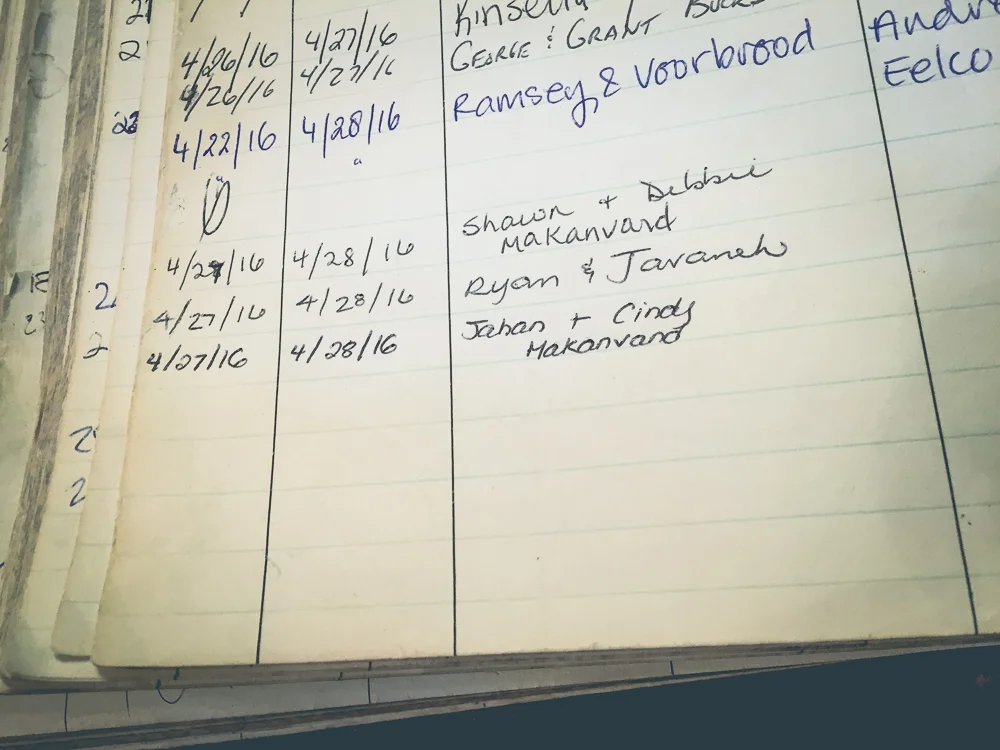 21 / / Kinsella
2 4/26/16 4/27/16 GEORGE & GRANT Andre
4/26/16 4/27/16
22 4/22/16 4/28/16 Ramsey & Voorbrood Eelco
"
Shawn + Debbie
4/27/16 4/28/16 Makanvand
2 4/27/16 4/28/16 Ryan & Taraneh
2 4/27/16 4/28/16 Jahan + Cindy
Makanvand
2
2